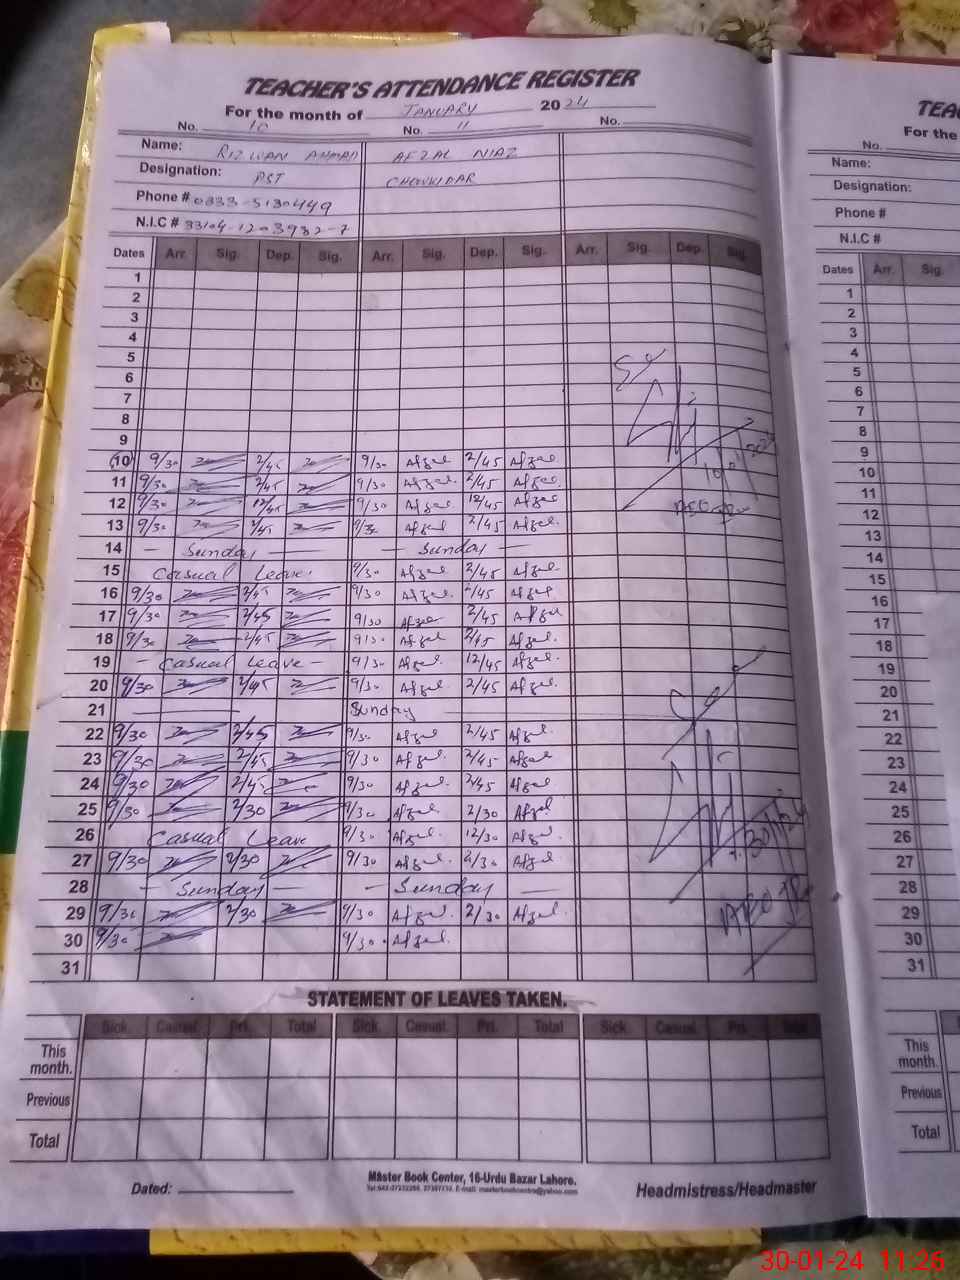 TEACHER'S ATTENDANCE REGISTER
For the month of JANUARY 2024
No. 10 No. 11 No.
Name: RIZWAN AHMAD AFZAL NIAZ
Designation: PST CHOWKIDAR
Phone # 0333-5130449
N.I.C # 33104-1203982-7
Dates Arr. Sig. Dep. Sig. Arr. Sig. Dep. Sig. Arr. Sig. Dep. Sig.
1
2
3
4
5
6
7
8
9
10 9/30 2/45 9/30 Afzal 2/45 Afzal
11 9/30 2/45 9/30 Afzal. 2/45 Afzal.
12 9/30 12/45 9/30 Afzal 12/45 Afzal
13 9/30 2/45 9/30 Afzal 2/45 Afzal.
14 — Sunday — — Sunday —
15 Casual Leave. 9/30 Afzal 2/45 Afzal
16 9/30 2/45 9/30 Afzal. 2/45 Afzal
17 9/30 2/45 9/30 Afzal 2/45 Afzal
18 9/30 2/45 9/30 Afzal 2/45 Afzal.
19 - Casual Leave - 9/30 Afzal. 12/45 Afzal.
20 9/30 2/45 9/30 Afzal. 2/45 Afzal.
21 Sunday
22 9/30 2/45 9/30 Afzal 2/45 Afzal.
23 9/30 2/45 9/30 Afzal. 2/45 Afzal
24 9/30 2/45 9/30 Afzal. 2/45 Afzal
25 9/30 2/30 9/30 Afzal. 2/30 Afzal
26 Casual Leave 9/30 Afzal. 12/30 Afzal.
27 9/30 2/30 9/30 Afzal. 2/30 Afzal.
28 — Sunday — - Sunday —
29 9/30 2/30 9/30 Afzal. 2/30 Afzal.
30 9/30 9/30 Afzal.
31
STATEMENT OF LEAVES TAKEN.
Sick. Casual. Pri. Total Sick. Casual. Pri. Total Sick. Casual. Pri. Total
This month.
Previous
Total
Dated:
Master Book Center, 16-Urdu Bazar Lahore.
Headmistress/Headmaster
TEAC
For the
No.
Name:
Designation:
Phone #
N.I.C #
Dates Arr. Sig.
1
2
3
4
5
6
7
8
9
10
11
12
13
14
15
16
17
18
19
20
21
22
23
24
25
26
27
28
29
30
31
This month.
Previous
Total
30-01-24 11:26